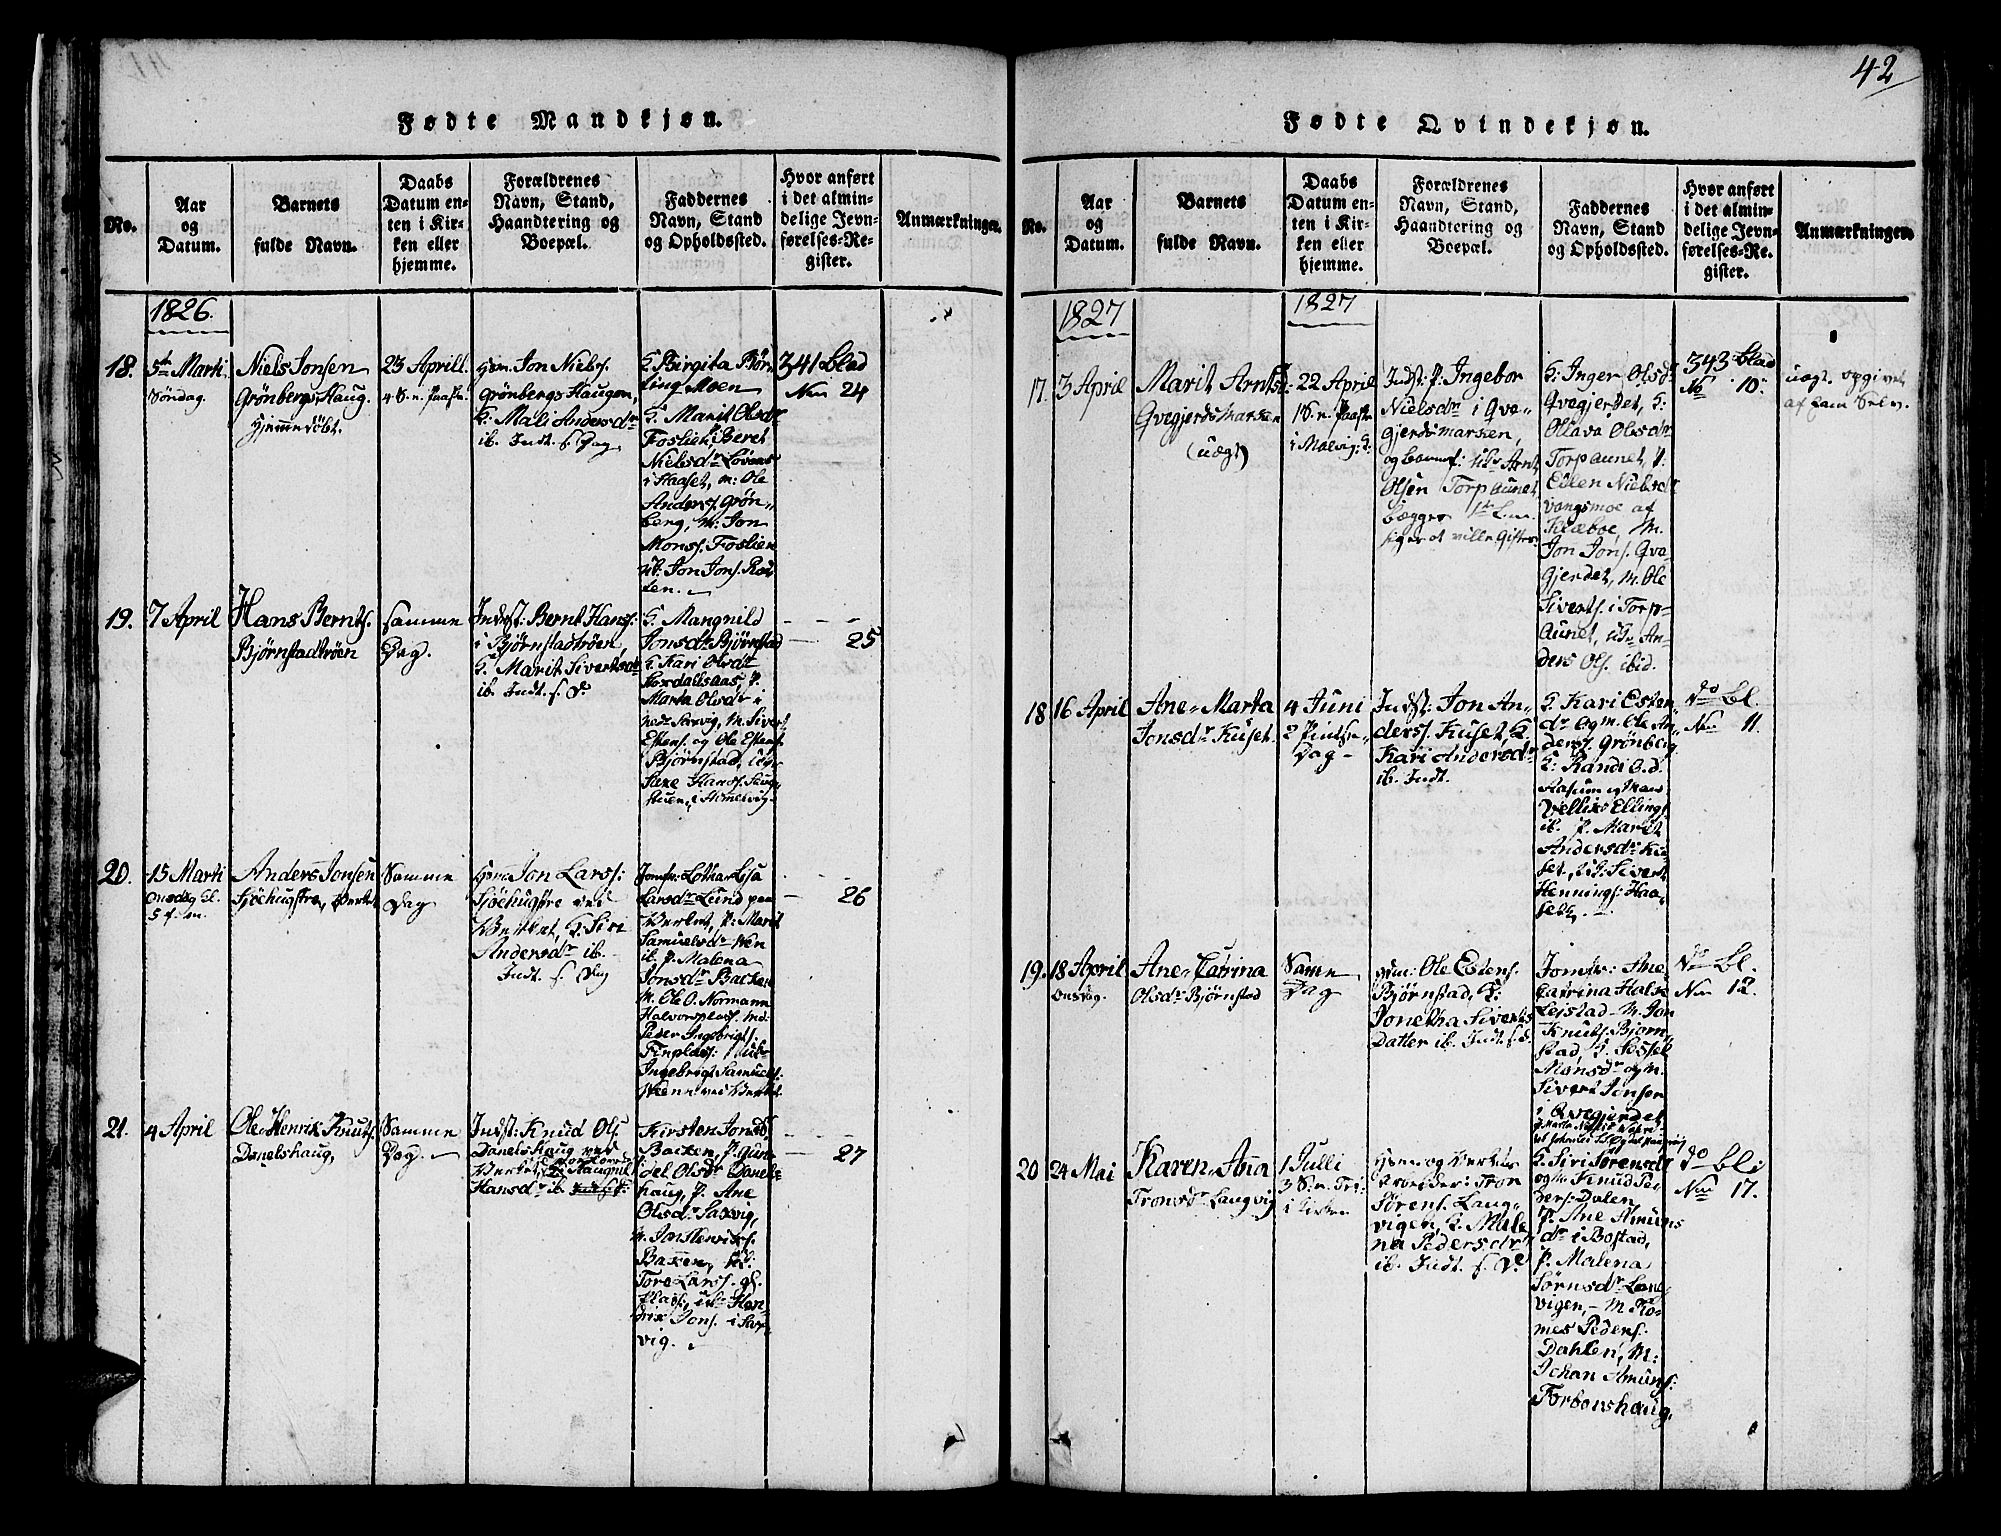 42
Fødte Mandkjøn.
No.
Aar
og
Datum.
Barnets
fulde Navn.
Daabs
Datum en-
ten i Kir-
ken eller
hjemme.
Forældrenes
Navn, Stand,
Haandtering og
Boepæl.
Faddernes
Navn, Stand
og Opholdssted.
Hvor anført
i det almin-
delige Jevn-
førelses-Re-
gister.
Anmærkninger.
1826.
18.
5te Marti
Søndag.
Niels Jonsen
Grönbergs Haug.
Hjemmedøbt.
23 Aprill.
4 S. n. Paaske
Jon Niels.
Grönbergs Haugen,
K. Mali Andersdr
ib. Indt. f. Dag
K. Birgita Bør-
ting Moen
K. Marit Olsdr
Foslien, Beret
Nielsdr Lövaas
i Haaset, m: Ole
Anders. Grön-
berg, M. Jon
Mons. Foslien
Jon Jons.
341 blad
No 24
19.
7 April
Hans Bernts.
Bjørnstadtrøen
samme
Dag.
Inderst: Bernt Hans:
i Bjørnstadtrøen,
K. Marit Sivertsdr
ib. Indt. f. D
K. Mangnild
Jonsdr Bjørnstad
K. Kari Olsdr
P.
Marta Olsdr i
M. Sivert
Estens. og Ole Estens.
Bjørnstad,
Hans.
25
20.
15 Marti
Onsdag
Anders Jonsen
Sjöehugstrø, Værket
Samme
Dag
Jon Lars:
Sjöehugstrø ved
Værket, K. Siri
Andersdr ib.
Indt. f. Dag
Jomfr: Lotha Lisa
Larsdr Lund paa
Værket, P: Marit
Samuelsdr
ib. P. Malena
Jonsdr Bakken
M. Ole O. Normann
Halvorsplass. Md:
Peder Ingebrigts.
Finplass:
Ingebrigt Samuels:
ved Værket.
26
21.
4 April
Ole Henrik Knuts.
Danelshaug,
Samme
Dag.
Indst: Knud Ols
Danelshaug ved
Værket,
Hansdr ib. Indt. f. D.
Kirsten Jonsd.
Bakken, P. Gun-
del Olsdr Danels-
haug, P. Ane
Olsdr Saxvig,
M. Jon Henriks.
Bakken,
Tore Lars.
Plass, ub. Hen-
drix Jons. i Sax-
vig.
27
Fødte Qvindekjøn.
No.
Aar
og
Datum.
Barnets
fulde Navn.
Daabs
Datum en-
ten i Kir-
ken eller
hjemme.
Forældrenes
Navn, Stand,
Haandtering og
Boepæl.
Faddernes
Navn, Stand
og Opholdssted.
Hvor anført
i det almin-
delige Jevn-
førelses-Re-
gister.
Anmærkninger.
1827
1827
17.
3 April
Marit Arntsd:
Qvegjerdsmarken
(uægt)
22 April
1 S. n. Paaske
i Malvig. K.
Indst: P. Ingebor
Nielsdr i Qve-
gjerdsmarken,
og Barnef: Arnt
Olsen Torpaunet
begges 1te
siger at ville Giftes
K. Inger Olsdr
Qvegjerdet, K:
Ollava Olsdr
Torpaunet, P.
Ellen Nielsdr
Vangsmoe af
Klæboe, M.
Jon Jons. Qve-
gjerdet, M. Ole
Siverts. i Torp-
aunet, An-
ders Ols. ibid.
343 blad
No 10.
uægt. opgivet
af ham selv.
18
16 April
Ane Marta
Jonsdr Kuset.
4 Juni
2 Pintse-
Dag
Indst: Jon An-
ders. Kuset K.
Kari Andersdr
ib. Indt.
K. Kari Esten-
dr og m. Ole An-
ders. Grönberg
K: Randi O.d.
Vellix Ellings.
ib. P. Marit
Andersdr Ku-
set, Sivert
Hennings: Haa-
seth,
Do bl.
No 11.
19.
18 April
Onsdag.
Ane Catrina
Olsdr Bjørnstad
Samme
Dag
Ole Estens.
Bjørnstad, K:
Jonetha Siverts
Datter ib. Indt. f. d.
Jomfr: Ane
Catrina Halse
Leistad M. Jon
Knuts. Bjørn-
stad, K. Sessel
Monsdr og M.
Sivert Jonsen
i Qvegjerdet
Do bl.
No 12.
20
24 Mai
Karen Ana
Tronsdr Langvig
1 Julli
3 S. n. Tri.
i Kirken
og Værkets
Arbeider: Tron
Sørens. Lang-
vigen, K. Male-
na Pedersdr
ib. Indt. f. D.
K. Siri Sørensdr
og Knud Pe-
ders: Dalen
P. Ane Amuns-
dr i Bostad,
P. Malena
Sørnsdr Lang-
vigen, M. To-
mes Peders.
Dahlen, M:
Johan Amuns:
Torbonshaug.
Do bl.
No 17.